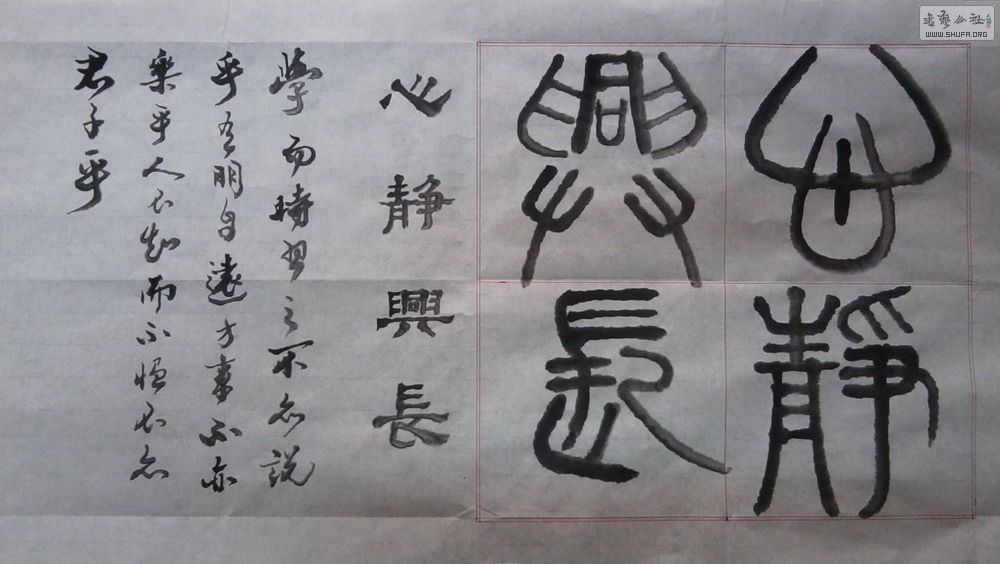 心靜
興長
心静興長
學而時習之不亦說
乎有朋自遠方來不亦
樂乎人不知而不愠不亦
君子乎
書藝公社
WWW.SHUFA.ORG